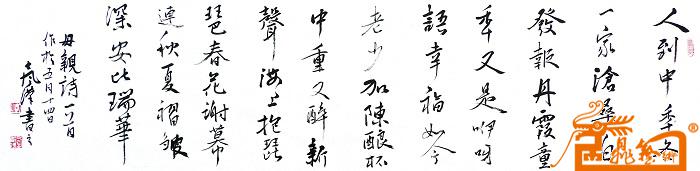 人到中年各
一家滄桑白
發報丹霞童
年又是咿呀
語幸福如今
老少加陳釀杯
中重又醉新
聲海上抱琵
琶春花謝幕
連秋夏褶皺
深安比瑞華
母親詩一首
作於五月十四日
書之